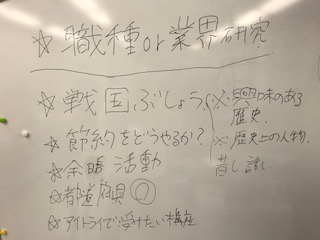 ☆ 職種or業界研究
☆ 戦国ぶしょう
☆ 節約をどうやるか?
☆ 余暇 活動
☆ 都道府県
☆ アイトライで受けたい講座
※ 興味のある
歴史.
※ 歴史上の人物.
昔し話し